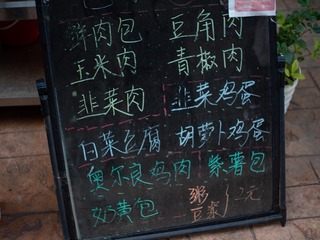 鲜肉包 豆角肉
玉米肉 青椒肉
韭菜肉 韭菜鸡蛋
白菜豆腐 胡萝卜鸡蛋
奥尔良鸡肉 紫薯包
奶黄包 粥 2元
豆浆